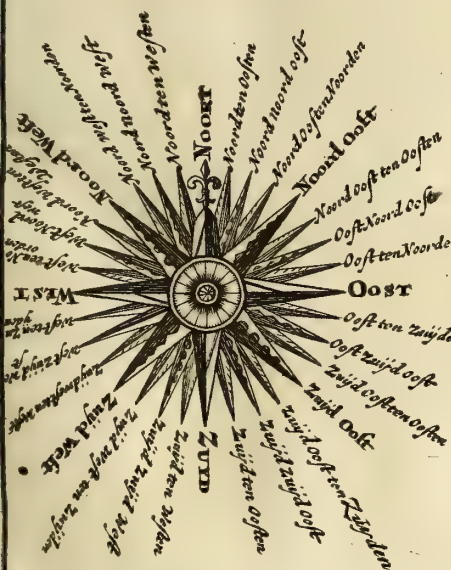 NOORT
Noord ten Oosten
Noord noord ooſt
Noord Ooſten Noorden
Noord Ooſt
Noord Ooſt ten Ooſten
Ooſt Noord Ooſt
Ooſt ten Noorde
OOST
Ooſt ten Zuijde
Ooſt Zuijd ooſt
Zuijd Ooſt ten ooſten
Zuijd Ooſt
Zuijd Ooſt ten Zuijden
Zuijd Zuijd Ooſt
Zuijd ten Ooſten
ZUID
Zuijd ten Weſten
Zuijd Zuijd Weſt
Zuijd weſt ten Zuijden
Zuijd Weſt
Zuijdweſten
Weſt Zuijd
Weſt ten
WEST
Weſt ten
Weſt Noord
Noord Weſten
Noord Weſt
Noord weſten Noorden
Noord noord weſt
Noord ten